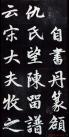 自書丹篆額
仇氏望陳留譜
云宗大夫牧之